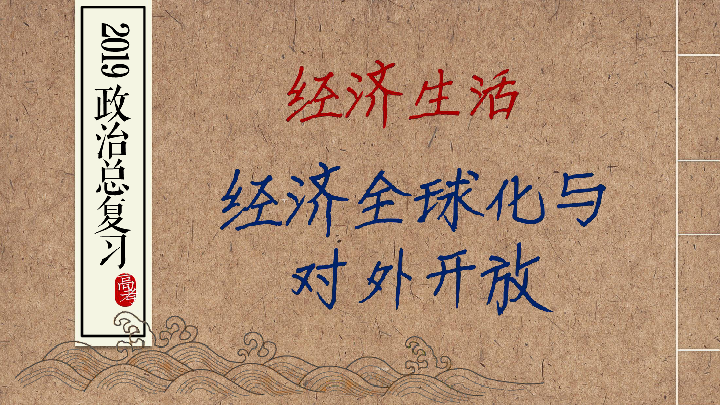 2019政治总复习
高考
经济生活
经济全球化与
对外开放